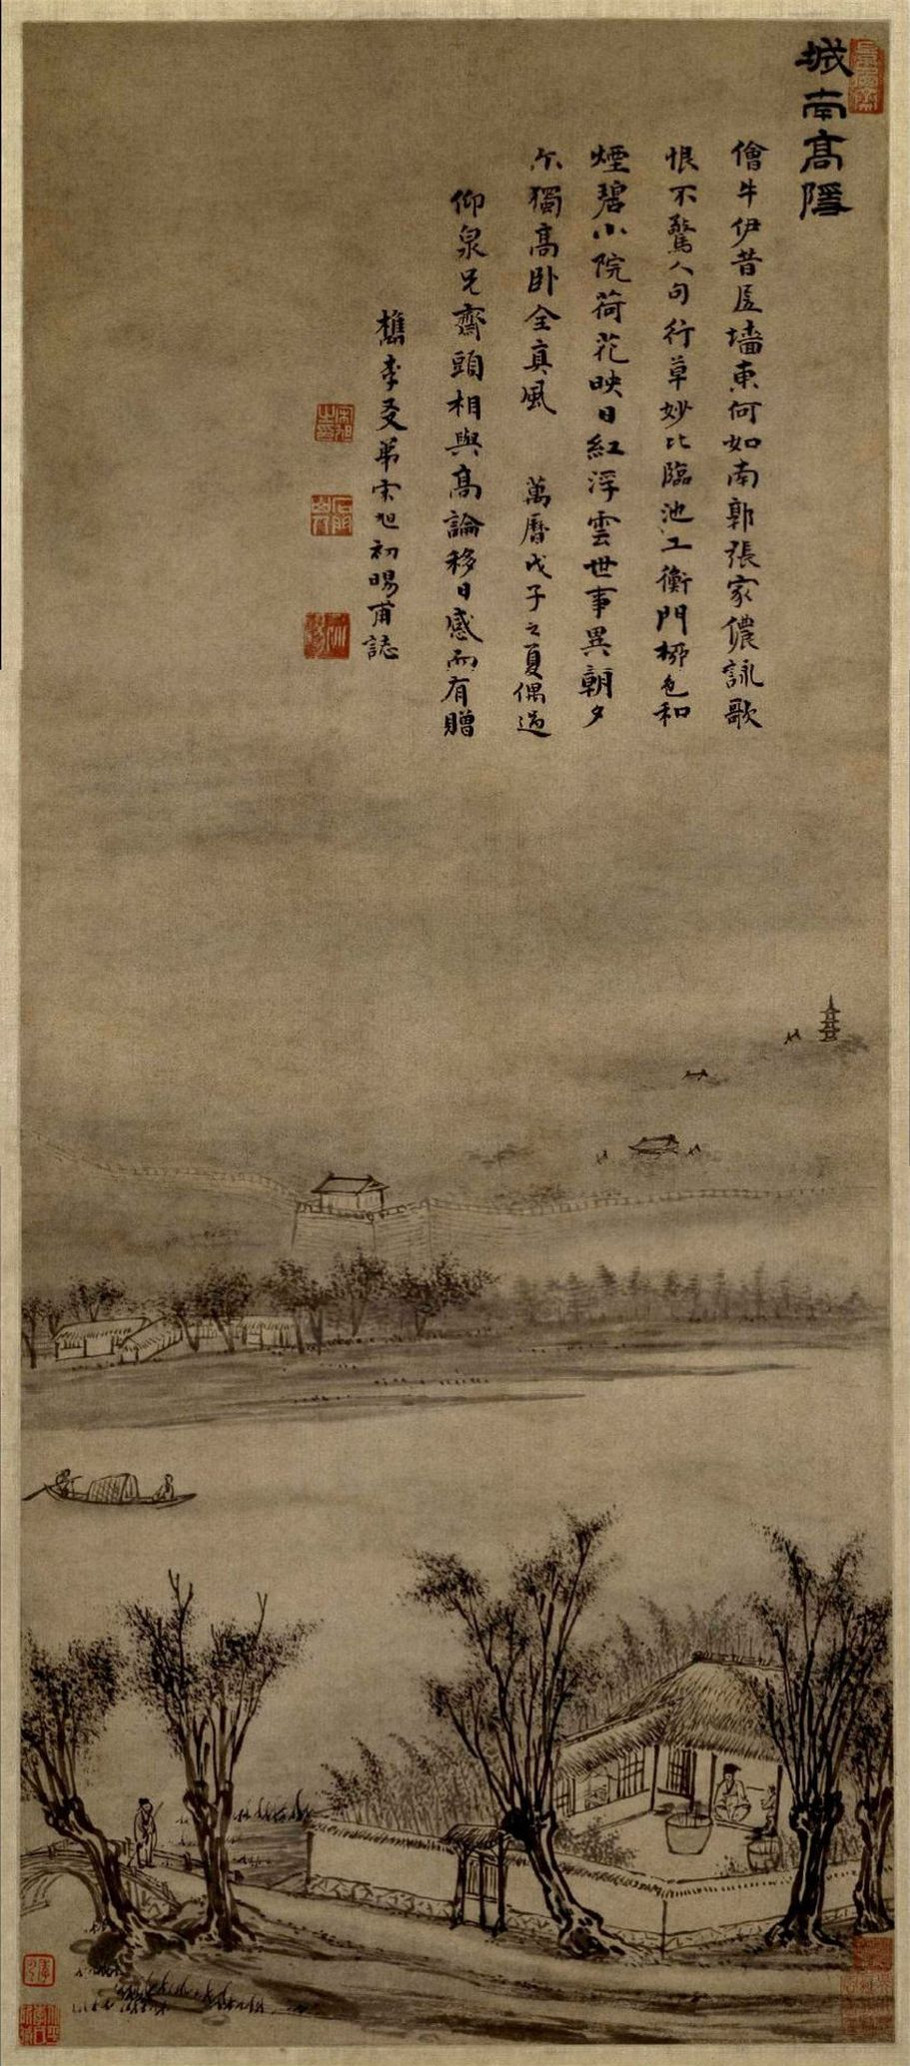 城南高隱
儈牛伊昔居墻東何如南郭張家儂詠歌
恨不驚人句行草妙比臨池工衡門柳色和
煙碧小院荷花映日紅浮雲世事異朝夕
尒獨高卧全真風 萬曆戊子之夏偶過
仰泉兄齋頭相與高論移日感而有贈
檇李友弟宋旭初暘甫誌
宋旭之印